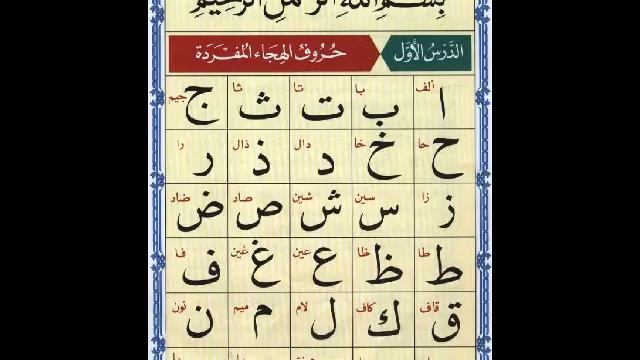 بِسْمِ اللهِ الرَّحْمٰنِ الرَّحِيْمِ
الدَّرْسُ الْأَوَّل حُرُوْفُ الْهِجَاءِ الْمُفْرَدَة
الف با تا ثا جيم
ا ب ت ث ج
حا خا دال ذال را
ح خ د ذ ر
زا سين شين صاد ضاد
ز س ش ص ض
طا ظا عين غين فا
ط ظ ع غ ف
قاف كاف لام ميم نون
ق ك ل م ن